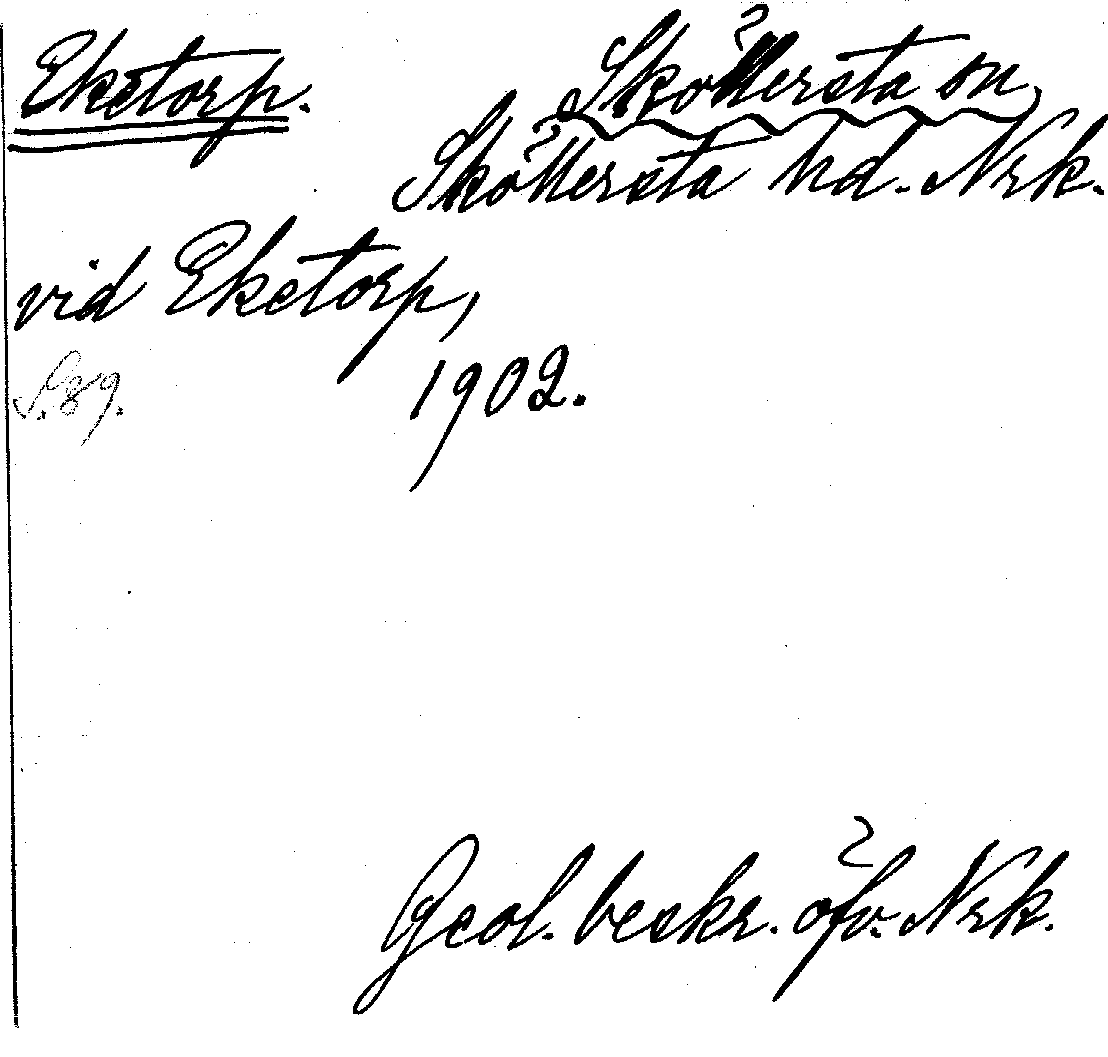 Eketorp. Sköllersta sn,
Sköllersta hd. Nrk.
vid Eketorp,
S. 89. 1902.
Geol. beskr. öfv. Nrk.